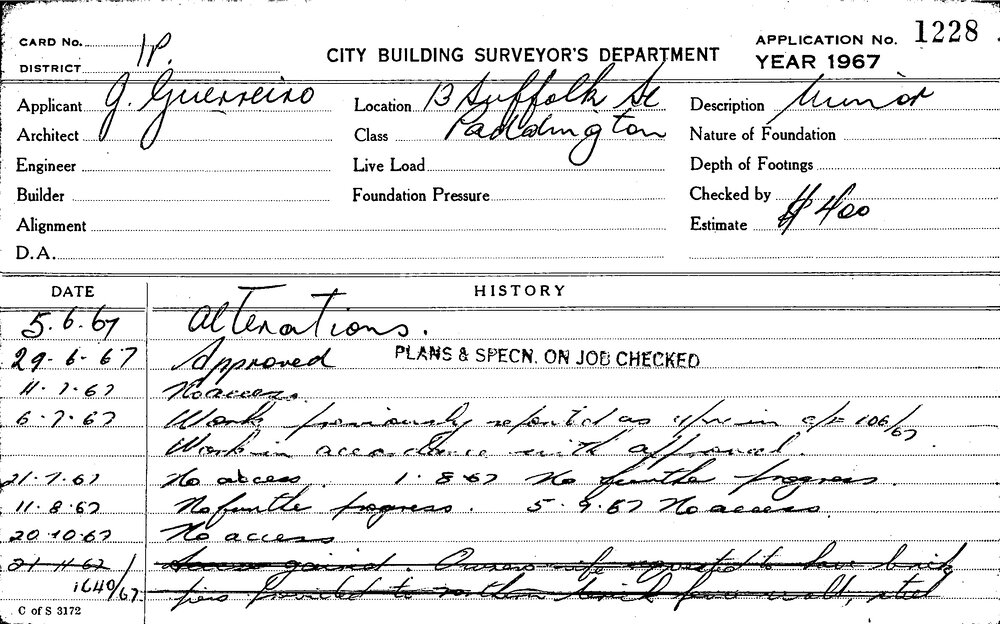 CARD No. 1P.
DISTRICT
CITY BUILDING SURVEYOR'S DEPARTMENT
APPLICATION No. 1228
YEAR 1967
Applicant J. Guerreiro
Location 13 Suffolk St
Description Minor
Architect
Class Paddington
Nature of Foundation
Engineer
Live Load
Depth of Footings
Builder
Foundation Pressure
Checked by
Alignment
Estimate $400
D.A.
DATE HISTORY
5.6.67 Alterations.
29.6.67 Approved PLANS & SPECN. ON JOB CHECKED
11.7.67 No access.
6.7.67 Work previously reported as in 106/67.
Work in accordance with approval.
21.7.67 No access. 1.8.67 No further progress.
11.8.67 No further progress. 5.9.67 No access.
20.10.67 No access
21.11.67 Access gained. Owners wife requested to have brick
1640/67 piers provided to northern brick wall, steel
C of S 3172